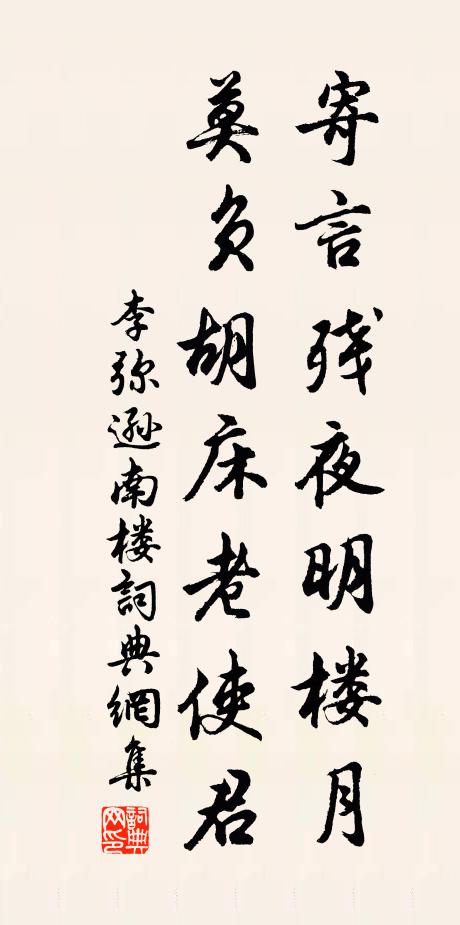 寄言残夜明楼月
莫负胡床老使君
李弥逊南楼詞典網集
詞典網印